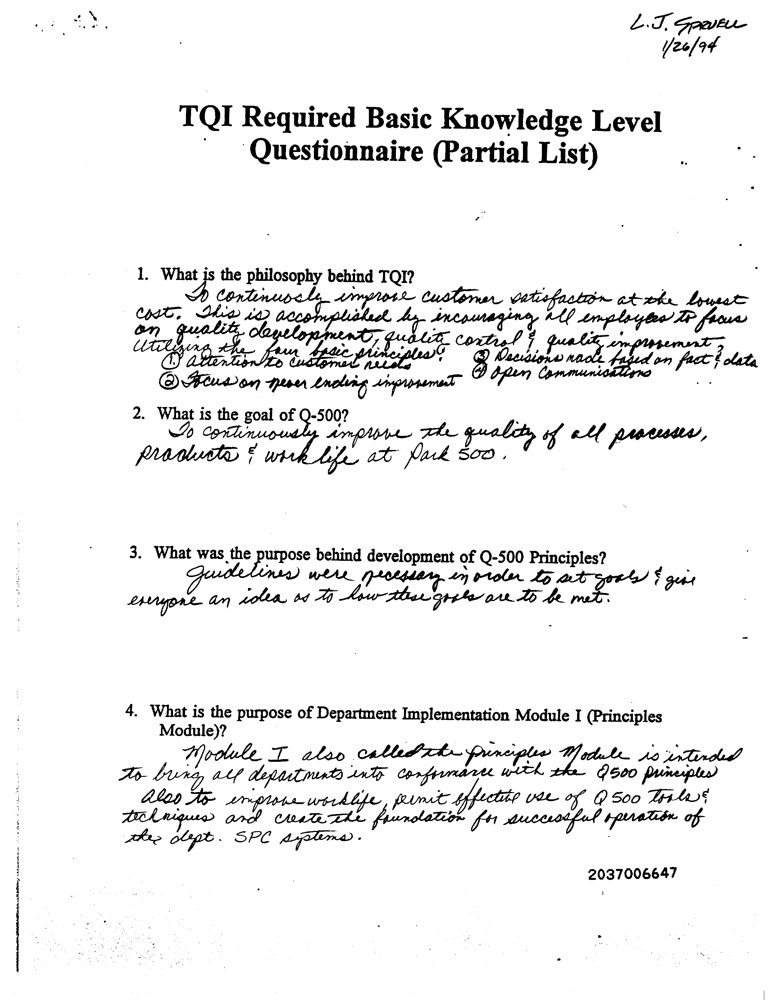 L.J. Spruell
1/26/94
TQI Required Basic Knowledge Level
Questionnaire (Partial List)
1. What is the philosophy behind TQI?
To continuosly improve customer satisfaction at the lowest
cost. This is accomplished by incouraging all employees to focus
on quality development, quality control & quality improvement,
Utilizing the four basic principles:
① attention to customer needs ③ Decisions made based on fact & data
② Focus on never ending improvement ④ open Communications
2. What is the goal of Q-500?
To continuously improve the quality of all processes,
products & work life at Park 500.
3. What was the purpose behind development of Q-500 Principles?
Guidelines were necessary in order to set goals & give
everyone an idea as to how these goals are to be met.
4. What is the purpose of Department Implementation Module I (Principles
Module)?
Module I also called the principles Module is intended
to bring all departments into conformance with the Q500 principles
Also to improve worklife, permit effective use of Q500 Tools &
techniques and create the foundation for successful operation of
the dept. SPC systems.
2037006647